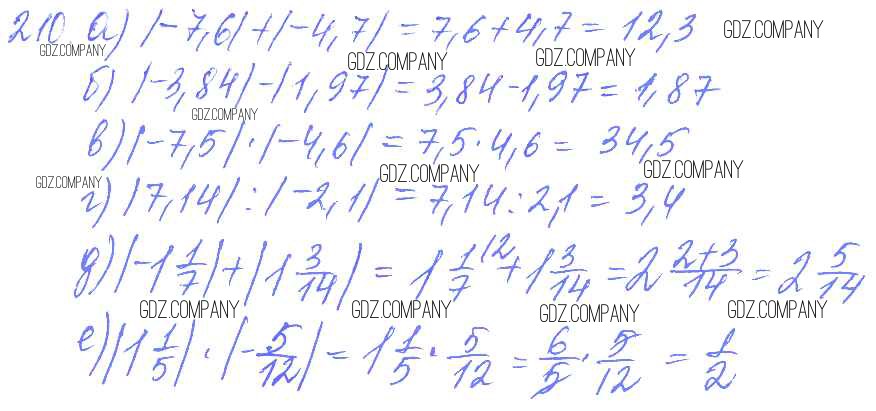 210 а) |-7,6|+|-4,7| = 7,6+4,7 = 12,3 GDZ.COMPANY
GDZ.COMPANY GDZ.COMPANY GDZ.COMPANY
б) |-3,84|-|1,97| = 3,84-1,97 = 1,87
GDZ.COMPANY
в) |-7,5|·|-4,6| = 7,5·4,6 = 34,5
GDZ.COMPANY GDZ.COMPANY GDZ.COMPANY
г) |7,14| : |-2,1| = 7,14 : 2,1 = 3,4
д) |-1 1/7| + |1 3/14| = 1 1/7 (2 + 1 3/14 = 2 2+3/14 = 2 5/14
GDZ.COMPANY GDZ.COMPANY GDZ.COMPANY GDZ.COMPANY
е) |1 1/5| · |-5/12| = 1 1/5 · 5/12 = 6/5 · 5/12 = 1/2